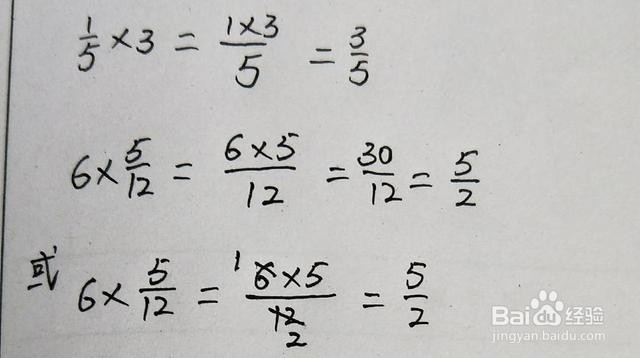 1/5 × 3 = 1×3/5 = 3/5
6 × 5/12 = 6×5/12 = 30/12 = 5/2
或 6 × 5/12 = 1 6×5/12 2 = 5/2
Baidu经验
jingyan.baidu.com